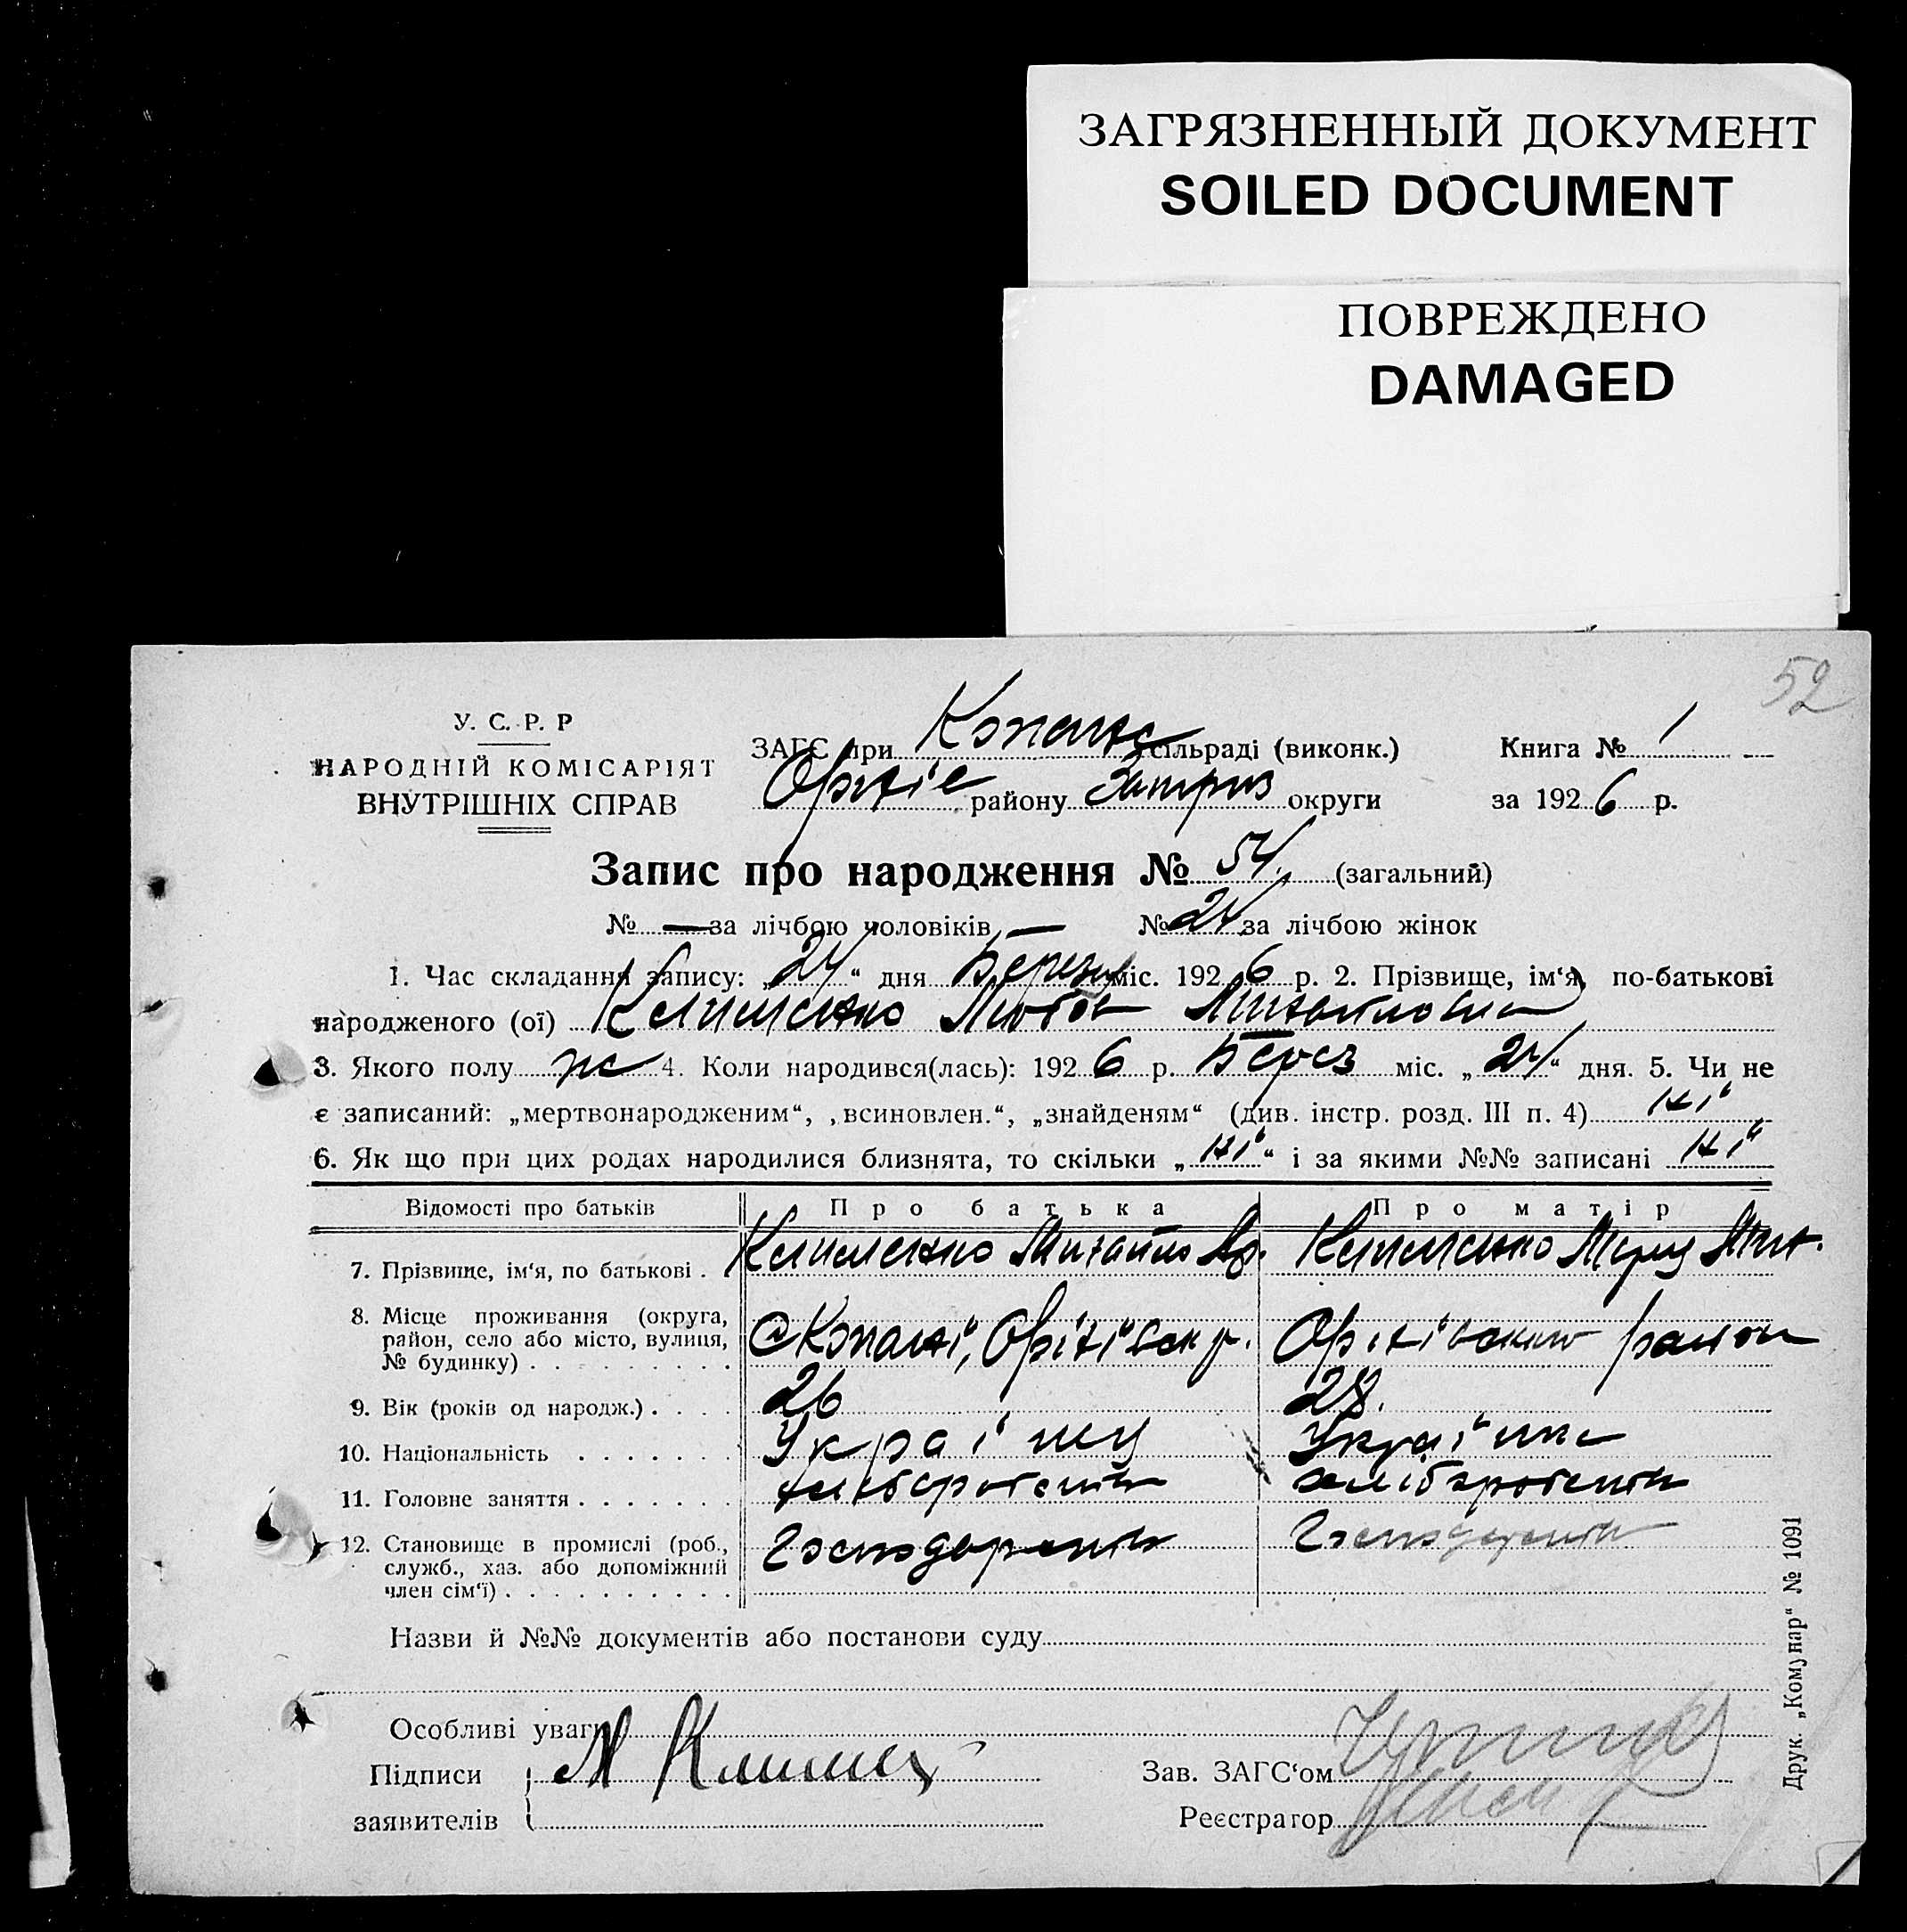 ЗАГРЯЗНЕННЫЙ ДОКУМЕНТ
SOILED DOCUMENT
ПОВРЕЖДЕНО
DAMAGED
52
У. С. Р. Р
НАРОДНІЙ КОМІСАРІЯТ
ВНУТРІШНІХ СПРАВ
ЗАГС при сільраді (виконк.) Книга № 1
району округи за 1926 р.
Запис про народження № 24 (загальний)
№ — за лічбою чоловіків — № 24 за лічбою жінок
1. Час складання запису: „24“ дня Березня міс. 1926 р. 2. Прізвище, ім‘я, по-батькові
народженого (ої) Клименко Любов Михайловна
3. Якого полу ж 4. Коли народився(лась): 1926 р. Берез міс. „24“ дня. 5. Чи не
є записаний: „мертвонародженим“, „всиновлен.“, „знайденям“ (див. інстр. розд. III п. 4) ні
6. Як що при цих родах народилися близнята, то скільки „ні“ і за якими №№ записані ні
Відомості про батьків Про батька Про матір
7. Прізвище, ім‘я, по батькові . Клименко Михайло Клименко Мария Мих.
8. Місце проживання (округа,
район, село або місто, вулиця,
№ будинку) . . . . . . . . . с Копані, Оріхівськ р. Оріхівського район
9. Вік (років од народж.) . . . . 26 28.
10. Національність . . . . . . . Українц Українка
11. Головне заняття . . . . . . . хліборобств хліборобств
12. Становище в промислі (роб.,
служб., хаз. або допоміжний
член сім‘ї) . . . . . . . . . .
Назви й №№ документів або постанови суду
Особливі уваги
Підписи М Климен
заявителів
Зав. ЗАГС‘ом
Реєстратор
Друк. „Комунар“ № 1091